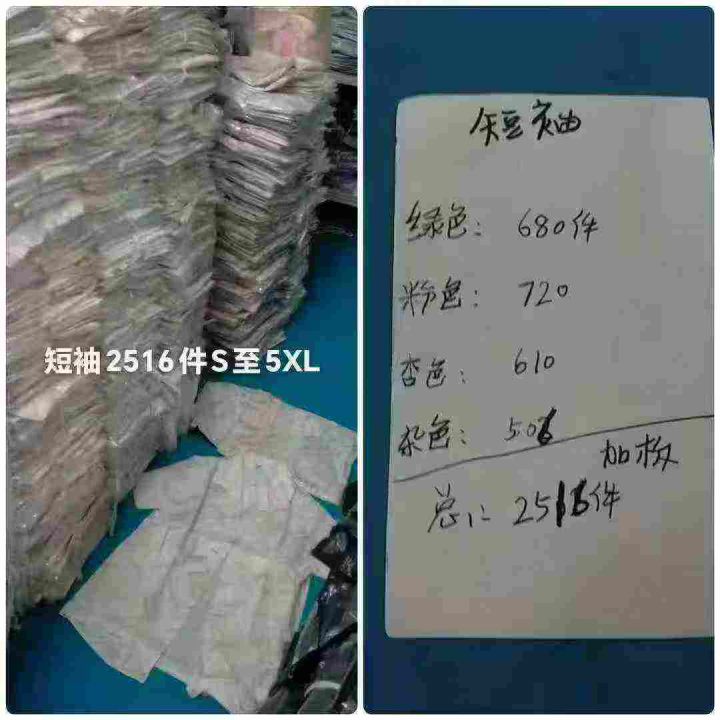 短袖2516件S至5XL
短袖
绿色: 680件
粉色: 720
杏色: 610
杂色: 506
加板
总计: 2516件